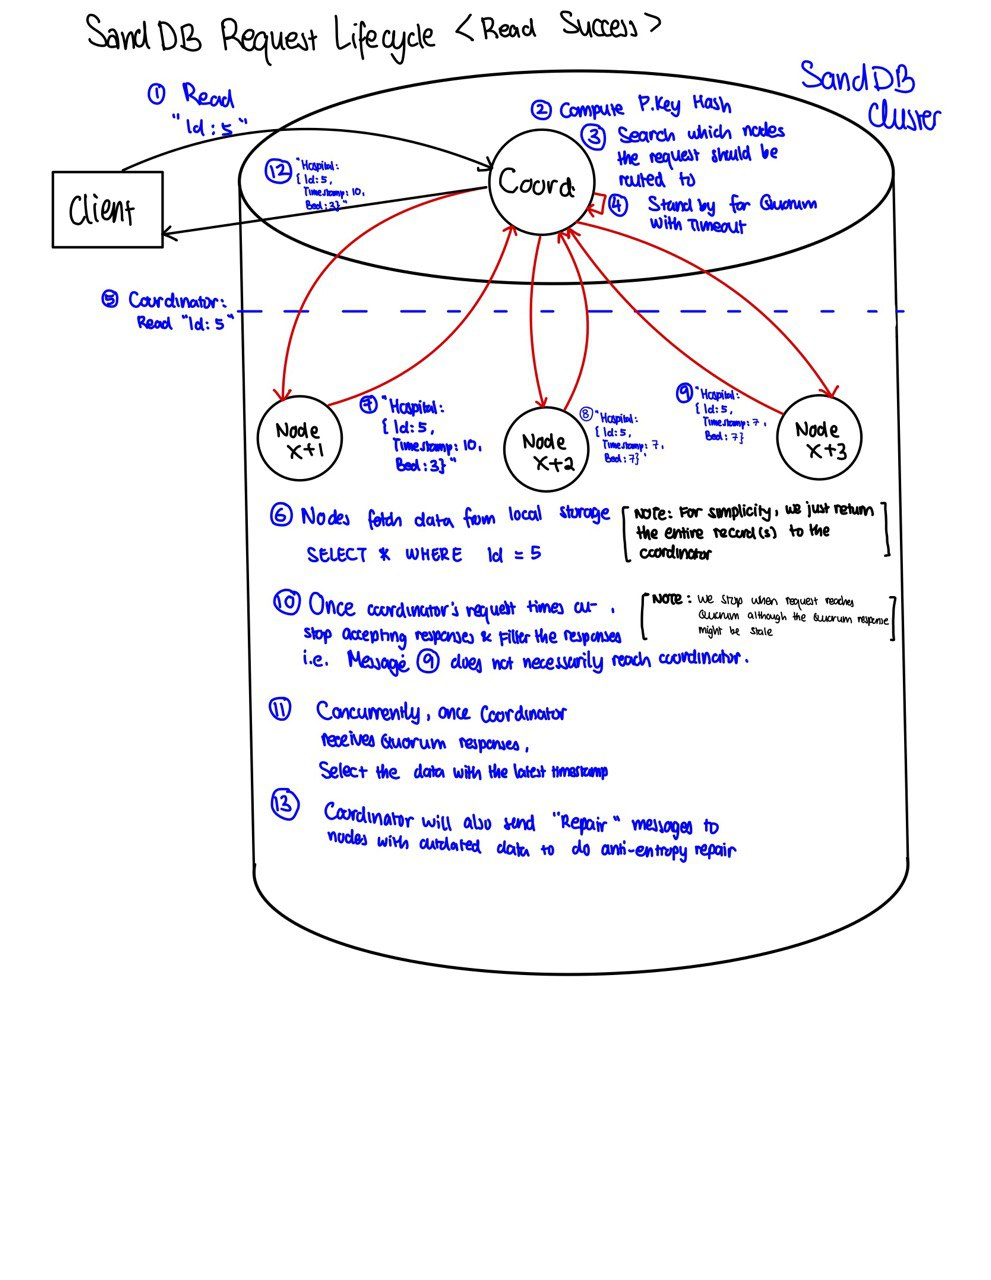 SandDB Request Lifecycle <Read Success>
① Read
"Id: 5"
SandDB
Cluster
② Compute P.Key Hash
③ Search which nodes
the request should be
routed to
④ Stand by for Quorum
with Timeout
Coord.
Client
⑫ "Hospital:
{ Id: 5,
Timestamp: 10,
Bed: 3} "
⑤ Coordinator:
Read "Id: 5"
Node
X+1
⑦ "Hospital:
{ Id: 5,
Timestamp: 10,
Bed: 3} "
Node
X+2
⑧ "Hospital:
{ Id: 5,
Timestamp: 7,
Bed: 7} "
⑨ "Hospital:
{ Id: 5,
Timestamp: 7,
Bed: 7}
Node
X+3
⑥ Nodes fetch data from local storage
SELECT * WHERE Id = 5
[Note: For simplicity, we just return
the entire record(s) to the
coordinator]
⑩ Once coordinator's request times out,
stop accepting responses & Filter the responses
i.e. Message ⑨ does not necessarily reach coordinator.
[Note: We stop when request reaches
Quorum although the Quorum response
might be stale]
⑪ Concurrently, once Coordinator
receives Quorum responses,
Select the data with the latest timestamp
⑬ Coordinator will also send "Repair" messages to
nodes with outdated data to do anti-entropy repair